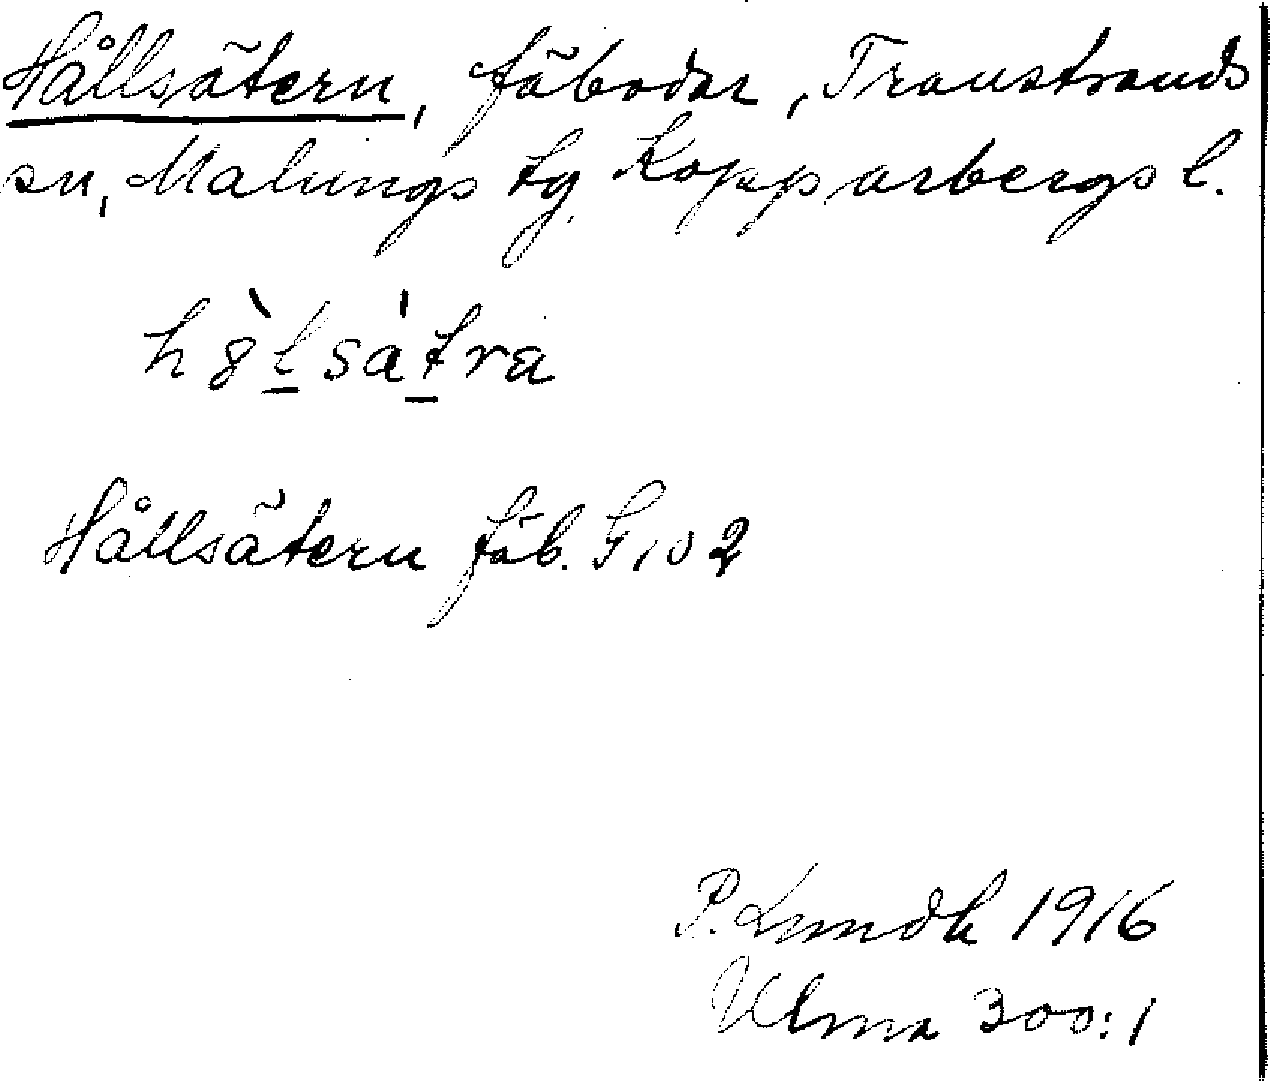 Hållsätern, fäbodar, Transtrands
sn, Malungs tg Kopparbergs l.
h8̀l̲sát̲ra
Hållsätern fäb. G102
P. Lundh 1916
Ulma 300:1